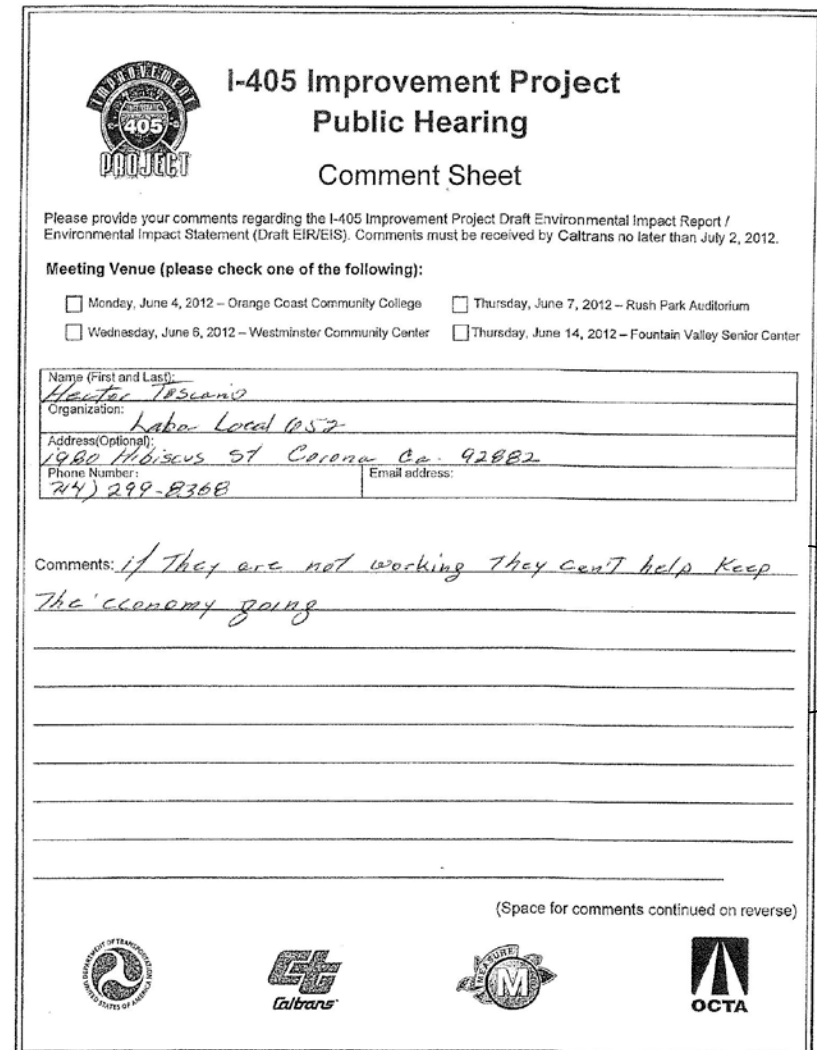 IMPROVEMENT
405
PROJECT
I-405 Improvement Project
Public Hearing
Comment Sheet
Please provide your comments regarding the I-405 Improvement Project Draft Environmental Impact Report /
Environmental Impact Statement (Draft EIR/EIS). Comments must be received by Caltrans no later than July 2, 2012.
Meeting Venue (please check one of the following):
Monday, June 4, 2012 – Orange Coast Community College
Thursday, June 7, 2012 – Rush Park Auditorium
Wednesday, June 6, 2012 – Westminster Community Center
Thursday, June 14, 2012 – Fountain Valley Senior Center
Name (First and Last):
Hector Toscano
Organization:
Labor Local 652
Address(Optional):
1980 Hibiscus St Corona Ca. 92882
Phone Number:
714) 299-8368
Email address:
Comments: if They are not working They can't help Keep
The economy going
(Space for comments continued on reverse)
DEPARTMENT OF TRANSPORTATION
UNITED STATES OF AMERICA
Caltrans
MEASURE
M
OCTA